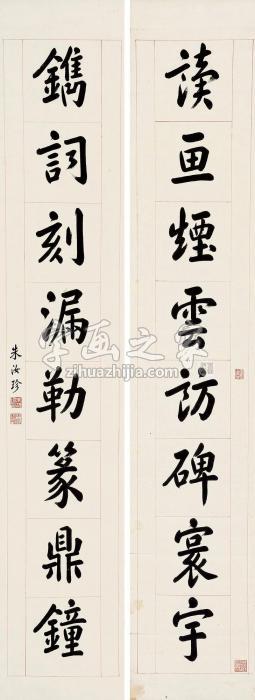 讀畫煙雲訪碑寰宇
鐫詞刻漏勒篆鼎鐘
朱汝珍
字画之家
zihuazhijia.com